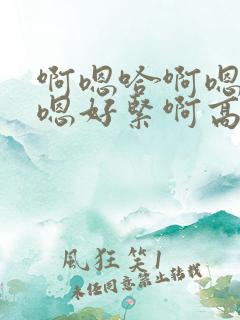 啊嗯哈啊嗯
嗯好紧啊高
風狂笑1
未经同意禁止转载